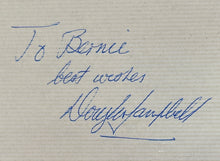 To Bernie
best wishes
Douglas Campbell